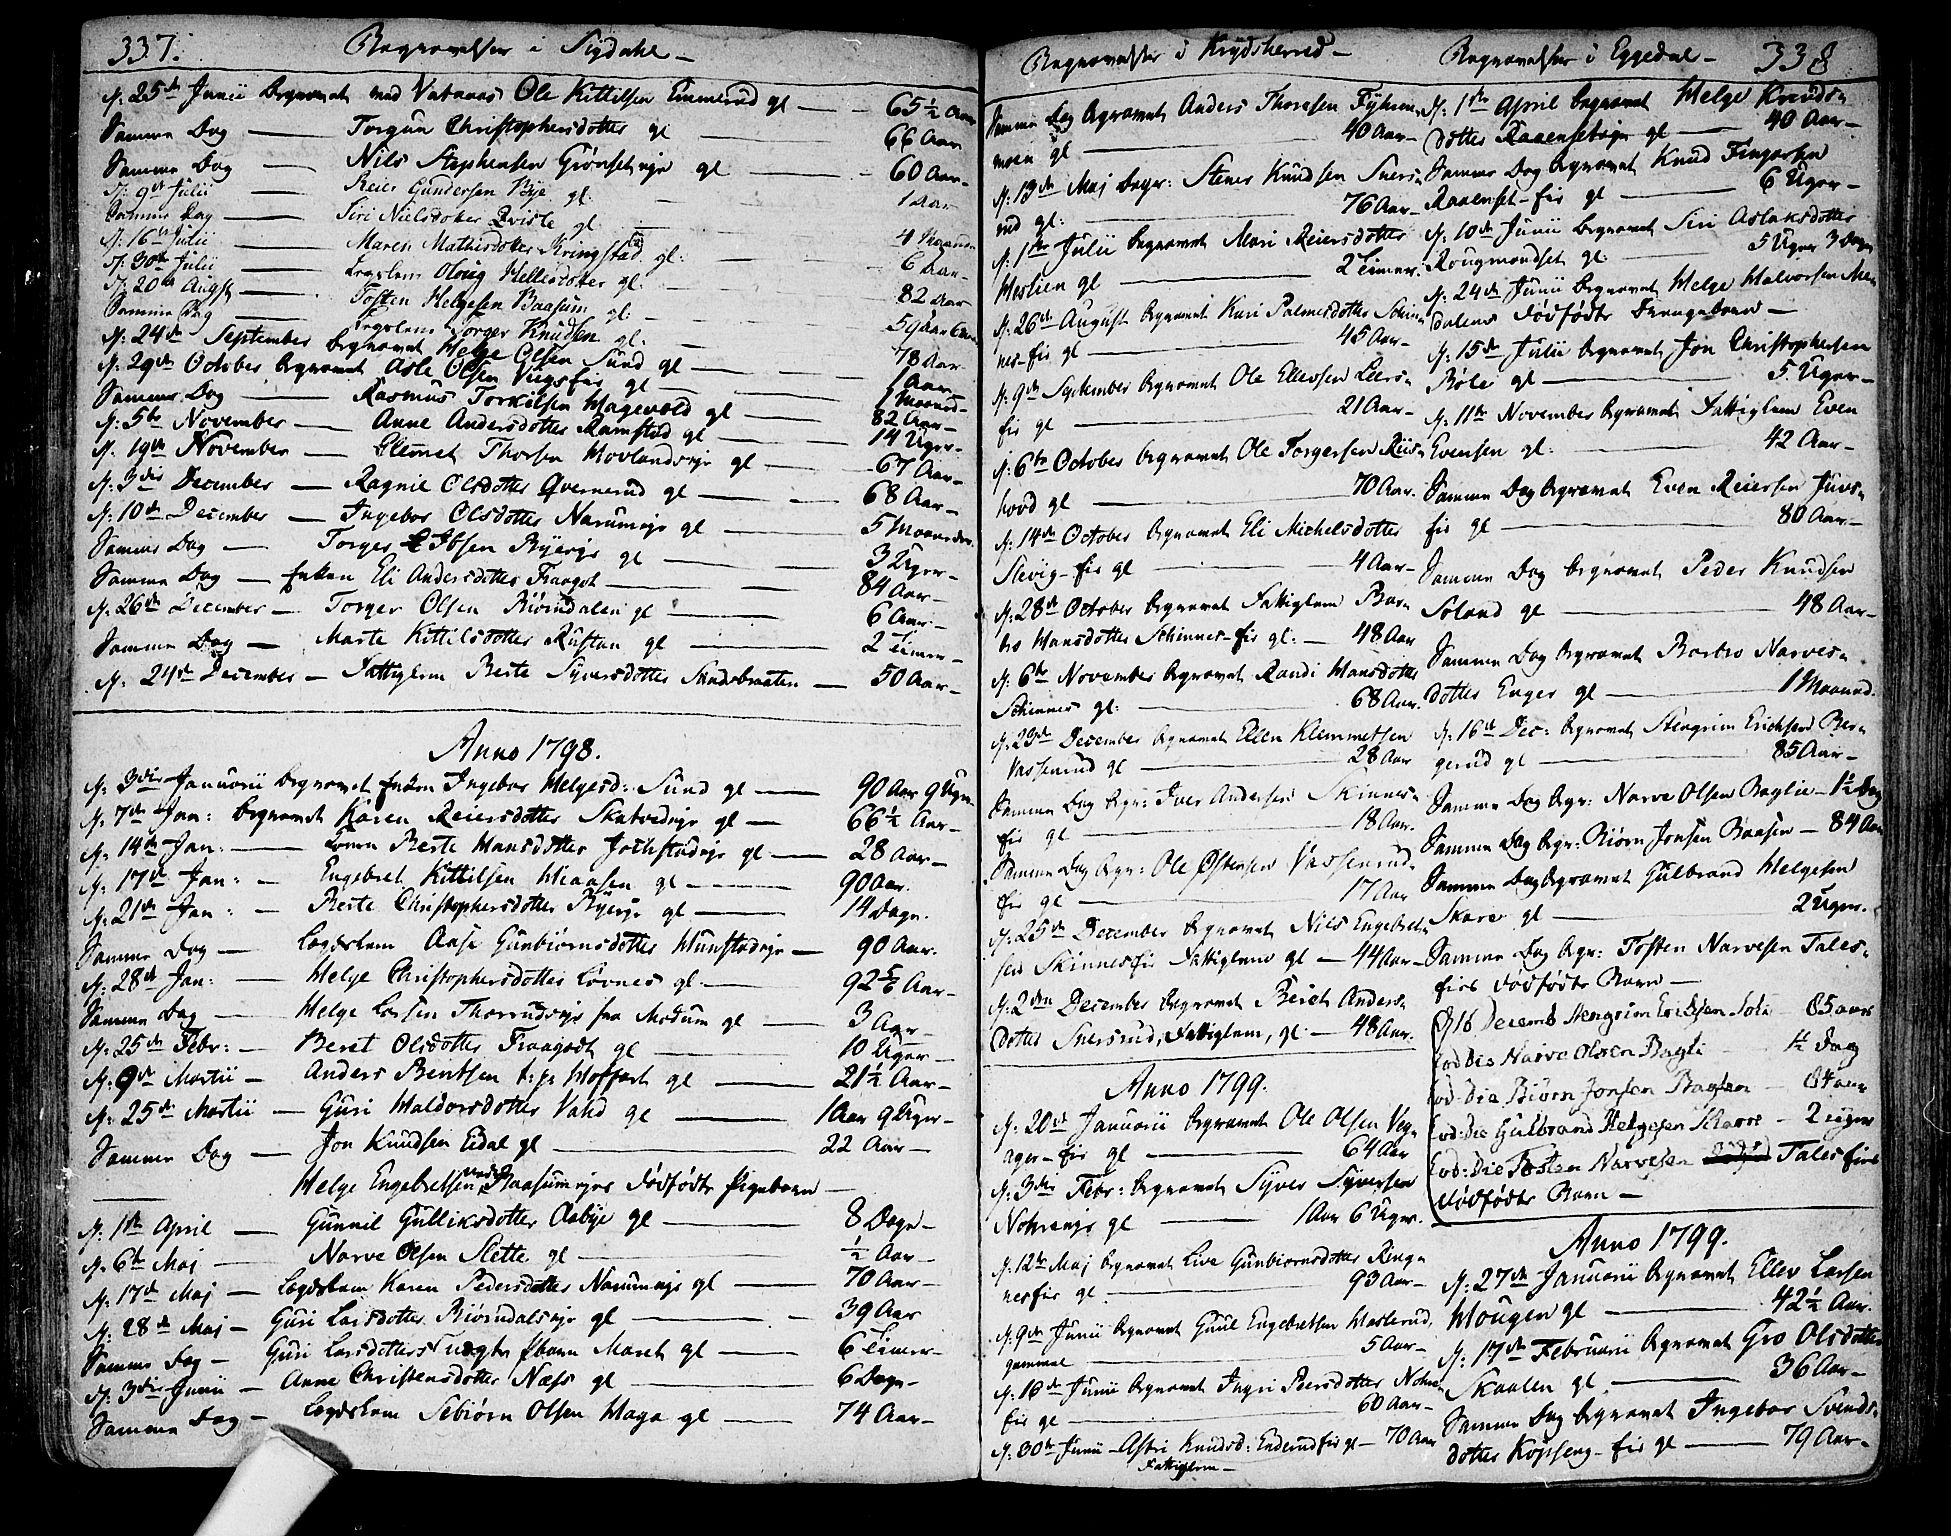 337.
Begravelser i Sigdahl -
d: 25de Junii begravet ved Vatnaas Ole Kittilsen Emmerud gl - 65 1/2 Aar
Samme Dag - Torgun Christophersdotter gl - 66 Aar
Samme Dag - Nils Stephensen Grønset gl - 60 Aar
d: 9de Julii - Reier Gundersen Bye gl: - 1 Aar
Samme Dag - Siri Nielsdotter Qvisle gl - 4 Maaneder
d: 16de Julii - Maren Mathisdotter Kringstad gl: - 6 Aar
d: 30te Julii - Legslem Oloug Hellesdotter gl - 82 Aar
d: 20de Augst - Tosten Helgesen Baasum gl:
Samme Dag - Legslem Torger Knudsen gl:
d: 24de September begravet Helge Olsen Sund gl - 78 Aar
d: 29de October begravet Asle Olsen gl - 1 Aar
Samme Dag - Rasmus Torkilsen Hagevold gl - 1 Maaned
d: 5te November - Anne Andersdotter Ramstad gl - 82 Aar
d: 19de November - Clemet Thorsen gl - 14 Uger
d: 3die December - Ragnil Olsdotter Qvernerud gl - 67 Aar
d: 10de December - Ingebor Olsdotter gl - 68 Aar
Samme Dag - Torger Ibsen gl - 5 Maaneder
Samme Dag - Enken Eli Andersdotter Fraagot - 3 Uger
d: 26de December - Torger Olsen Biørndalen gl - 84 Aar
Samme Dag - Marte Kittilsdotter Rustan gl - 6 Aar
2 Timer
d: 24de December - Fattiglem Berte Syversdotter Skadsbraaten - 50 Aar
Anno 1798.
d: 3die Januarii begravet Enken Ingebor Helgesd: Sund gl - 90 Aar 9 Uger
d: 7de Jan: begravet Karen Reiersdotter gl - 66 1/2 Aar
d: 14de Jan: - Konen Berte Hansdotter gl - 28 Aar
d: 17de Jan: - Engebret Kittilsen Hiaasen gl - 90 Aar.
d: 21de Jan: - Berte Christophersdotter gl - 14 Dage.
Samme Dag - Legdslem Aase Gunbiørnsdotter - 90 Aar.
d: 28de Jan: - Helge Christophersdotter Lovnes gl - 92 5/6 Aar
Samme Dag - Helge Larsen fra Modum gl - 3 Aar
d: 25de Febr: - Beret Olsdotter Fraagodt gl - 10 Uger
d: 9de Martii - Anders Bentsen Hoffart gl - 21 1/2 Aar
d: 25de Martii - Guri Haldorsdotter gl - 1 Aar 9 Uger
Samme Dag - Jon Knudsen Eidal gl - 22 Aar
Helge Engebretsen Baasum Dødfødte Pigebarn
d: 1te April - Gunnil Gulliksdotter Aabye gl - 8 Dage
d: 6te Maj - Narve Olsen Slette gl - 1/2 Aar
d: 17de Maj - Legdslem Karen Pedersdotter gl - 70 Aar
d: 28de Maj - Guri Larsdotter gl - 39 Aar
Samme Dag - Guri Larsdotters Barn Maret gl - 6 Timer
d: 3die Junii - Anne Christensdotter Næss gl - 6 Dage
Samme Dag - Legdslem Sebiørn Olsen Haga gl - 74 Aar
Begravelser i Krydsherred -
Samme Dag begravet Anders Thoresen
moen gl - 40 Aar
d: 13de Maj begr: Stener Knudsen Sners=
rud gl: - 76 Aar
d: 1te Julii begravet Mari Reiersdotter
Heslien gl - 2 Timer.
d: 26de August begravet Kari Palmesdotter Skin=
nes-eie gl - 45 Aar
d: 9de September begravet Ole Ellevsen Leers=
eie gl - 21 Aar
d: 6te October begravet Ole Torgersen Riis=
hovd gl - 70 Aar.
d: 14de October begravet Eli Michelsdotter
Slevig-eie gl - 4 Aar
d: 28de October begravet Fattiglem Bar=
bro Hansdotter Schinnes-eie gl: - 48 Aar
d: 6te November begravet Randi Hansdotter
Schinnes gl: - 68 Aar.
d: 23de December begravet Ellen Klemmetsen
Vassenrud gl - 28 Aar
Samme Dag begr: Iver Andersen Skinnes=
eie gl - 18 Aar.
Samme Dag begr: Ole Østensen Vassenrud=
eie gl - 17 Aar
d: 25de December begravet Nils Engebret=
sen Skinneseie Fattiglem gl - 44 Aar
d: 2den December begravet Beret Anders=
dotter Snersrud, Fattiglem, gl: - 48 Aar.
Anno 1799.
d: 20de Januarii begravet Ole Olsen Veg=
ager-eie gl - 64 Aar
d: 3die Febr: begravet Syver Syversen
gl - 1 Aar 6 Uger.
d: 12te Maj begravet Live Gunbiørnsdotter Ring=
neseie gl - 93 Aar
d: 9de Junii begravet Guul Engebretsen Haslerud,
gammel - 5 Aar
d: 16de Junii begravet Ingri Peersdotter
eie gl - 60 Aar
d: 30te Junii - Astri Knudsd: Enderudeie gl - 70 Aar
Fattiglem -
Begravelser i Eggedal - 338
d: 1te April begravet Helge Knuds=
dotter gl - 40 Aar
Samme Dag begravet Knud Fingersen
Raaenset-eie gl - 6 Uger
d: 10de Junii begravet Siri Aslaksdotter
gl: - 5 Uger 3 Dage
d: 24de Junii begravet Helge Halvorsen Me=
dalens Dødfødte Drengebarn
d: 15de Julii begravet Jon Christophersen
gl - 5 Uger
d: 11te November begravet Fattiglem Even
Evensen gl: - 42 Aar
Samme Dag begravet Even Reiersen Juvs=
eie gl - 80 Aar
Samme Dag begravet Peder Knudsen
Soland gl - 48 Aar
Samme Dag begravet Barbro Narves=
dotter Enger gl - 1 Maaned.
d: 16de Dec: begravet Stengrim Erichsen Ber=
gerud gl - 85 Aar
Samme Dag begr: Narve Olsen Baglie - 1 1/2 Dag
Samme Dag begr: Biørn Jonsen Baasen - 84 Aar
Samme Dag begravet Gulbrand Helgesen
Skare gl - 2 Uger.
Samme Dag begr: Tosten Narvesen Tales=
eies Dødfødte Barn
d 16 Decemb Stengrim Ericksen - 85 aar
eod: die Narve Olsen Bagli - 1/2 Dag
eod: die Biørn Jonsen - 84 aar
eod: die Gulbrand Helgesen Skarre - 2 uger
eod: die Tosten Narvesen Taleseie
dødfødte Barn
Anno 1799.
d: 27de Januarii begravet Ellev Larsen
Hougen gl - 42 1/2 Aar.
d: 17de Februarii begravet Gro Olsdotter
Skaalen gl. - 36 Aar
Samme Dag begravet Ingebor Svends=
dotter Kopseng-eie gl - 79 Aar